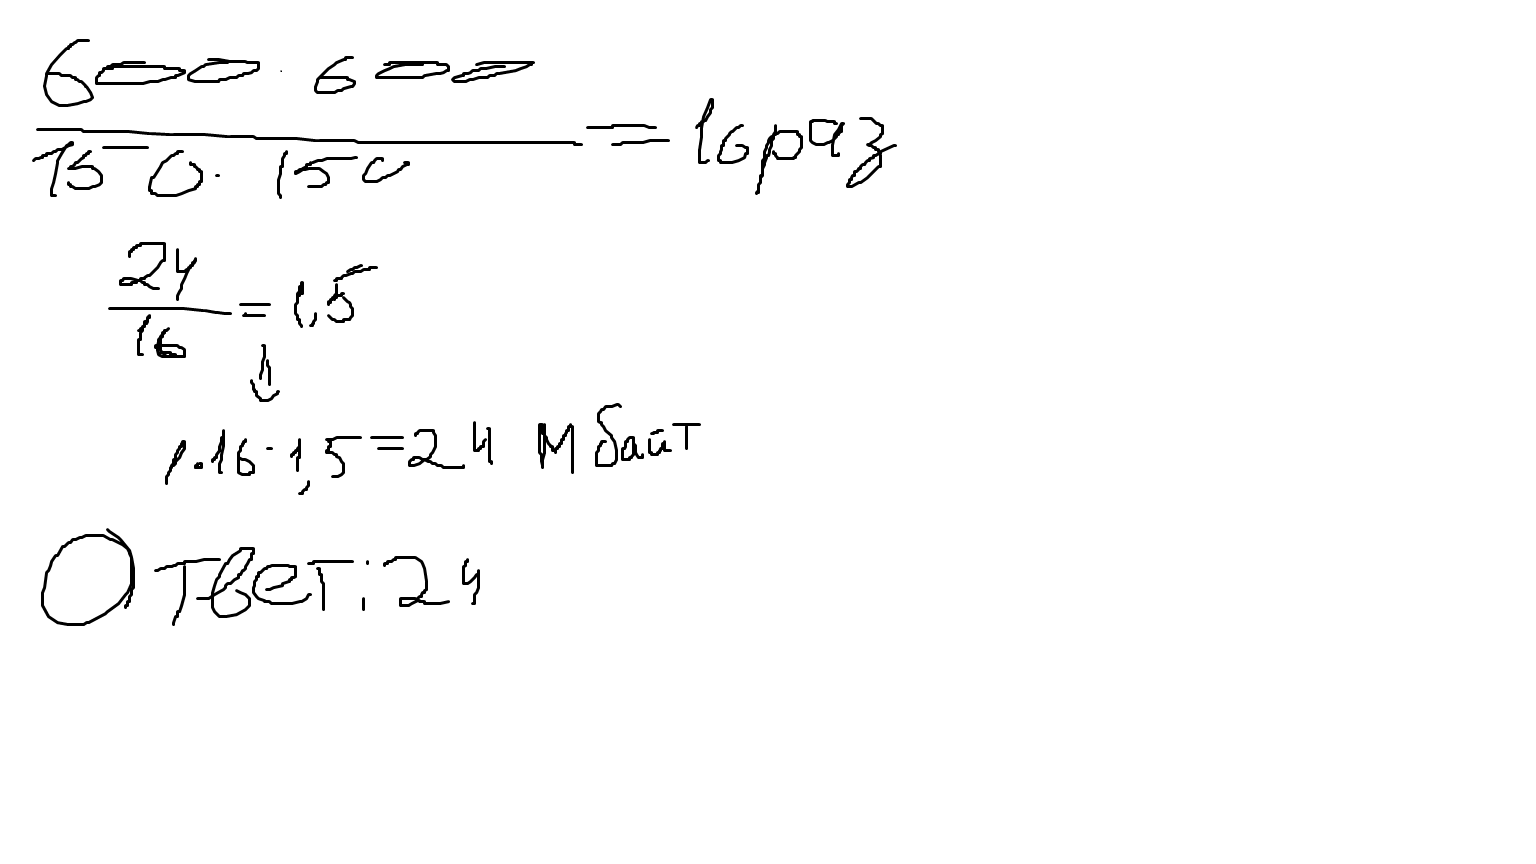 600 · 600
150 · 150
= 16 раз
24
16
= 1,5
↓
1 · 16 · 1,5 = 24 Мбайт
Ответ: 24